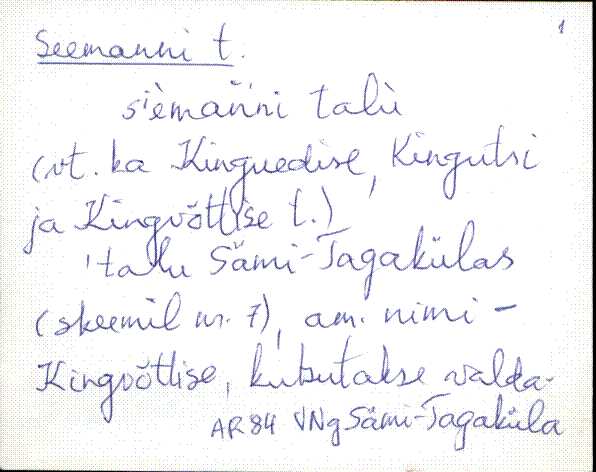 1
Seemanni t.
siemanni talu
(vt. ka Kinguedise, Kingutsi
ja Kingvõttise t.)
talu Sämi-Tagakülas
(skeemil nr. 7), am. nimi -
Kingvõttise, kutsutakse valda-
AR84 VNg Sämi-Tagaküla